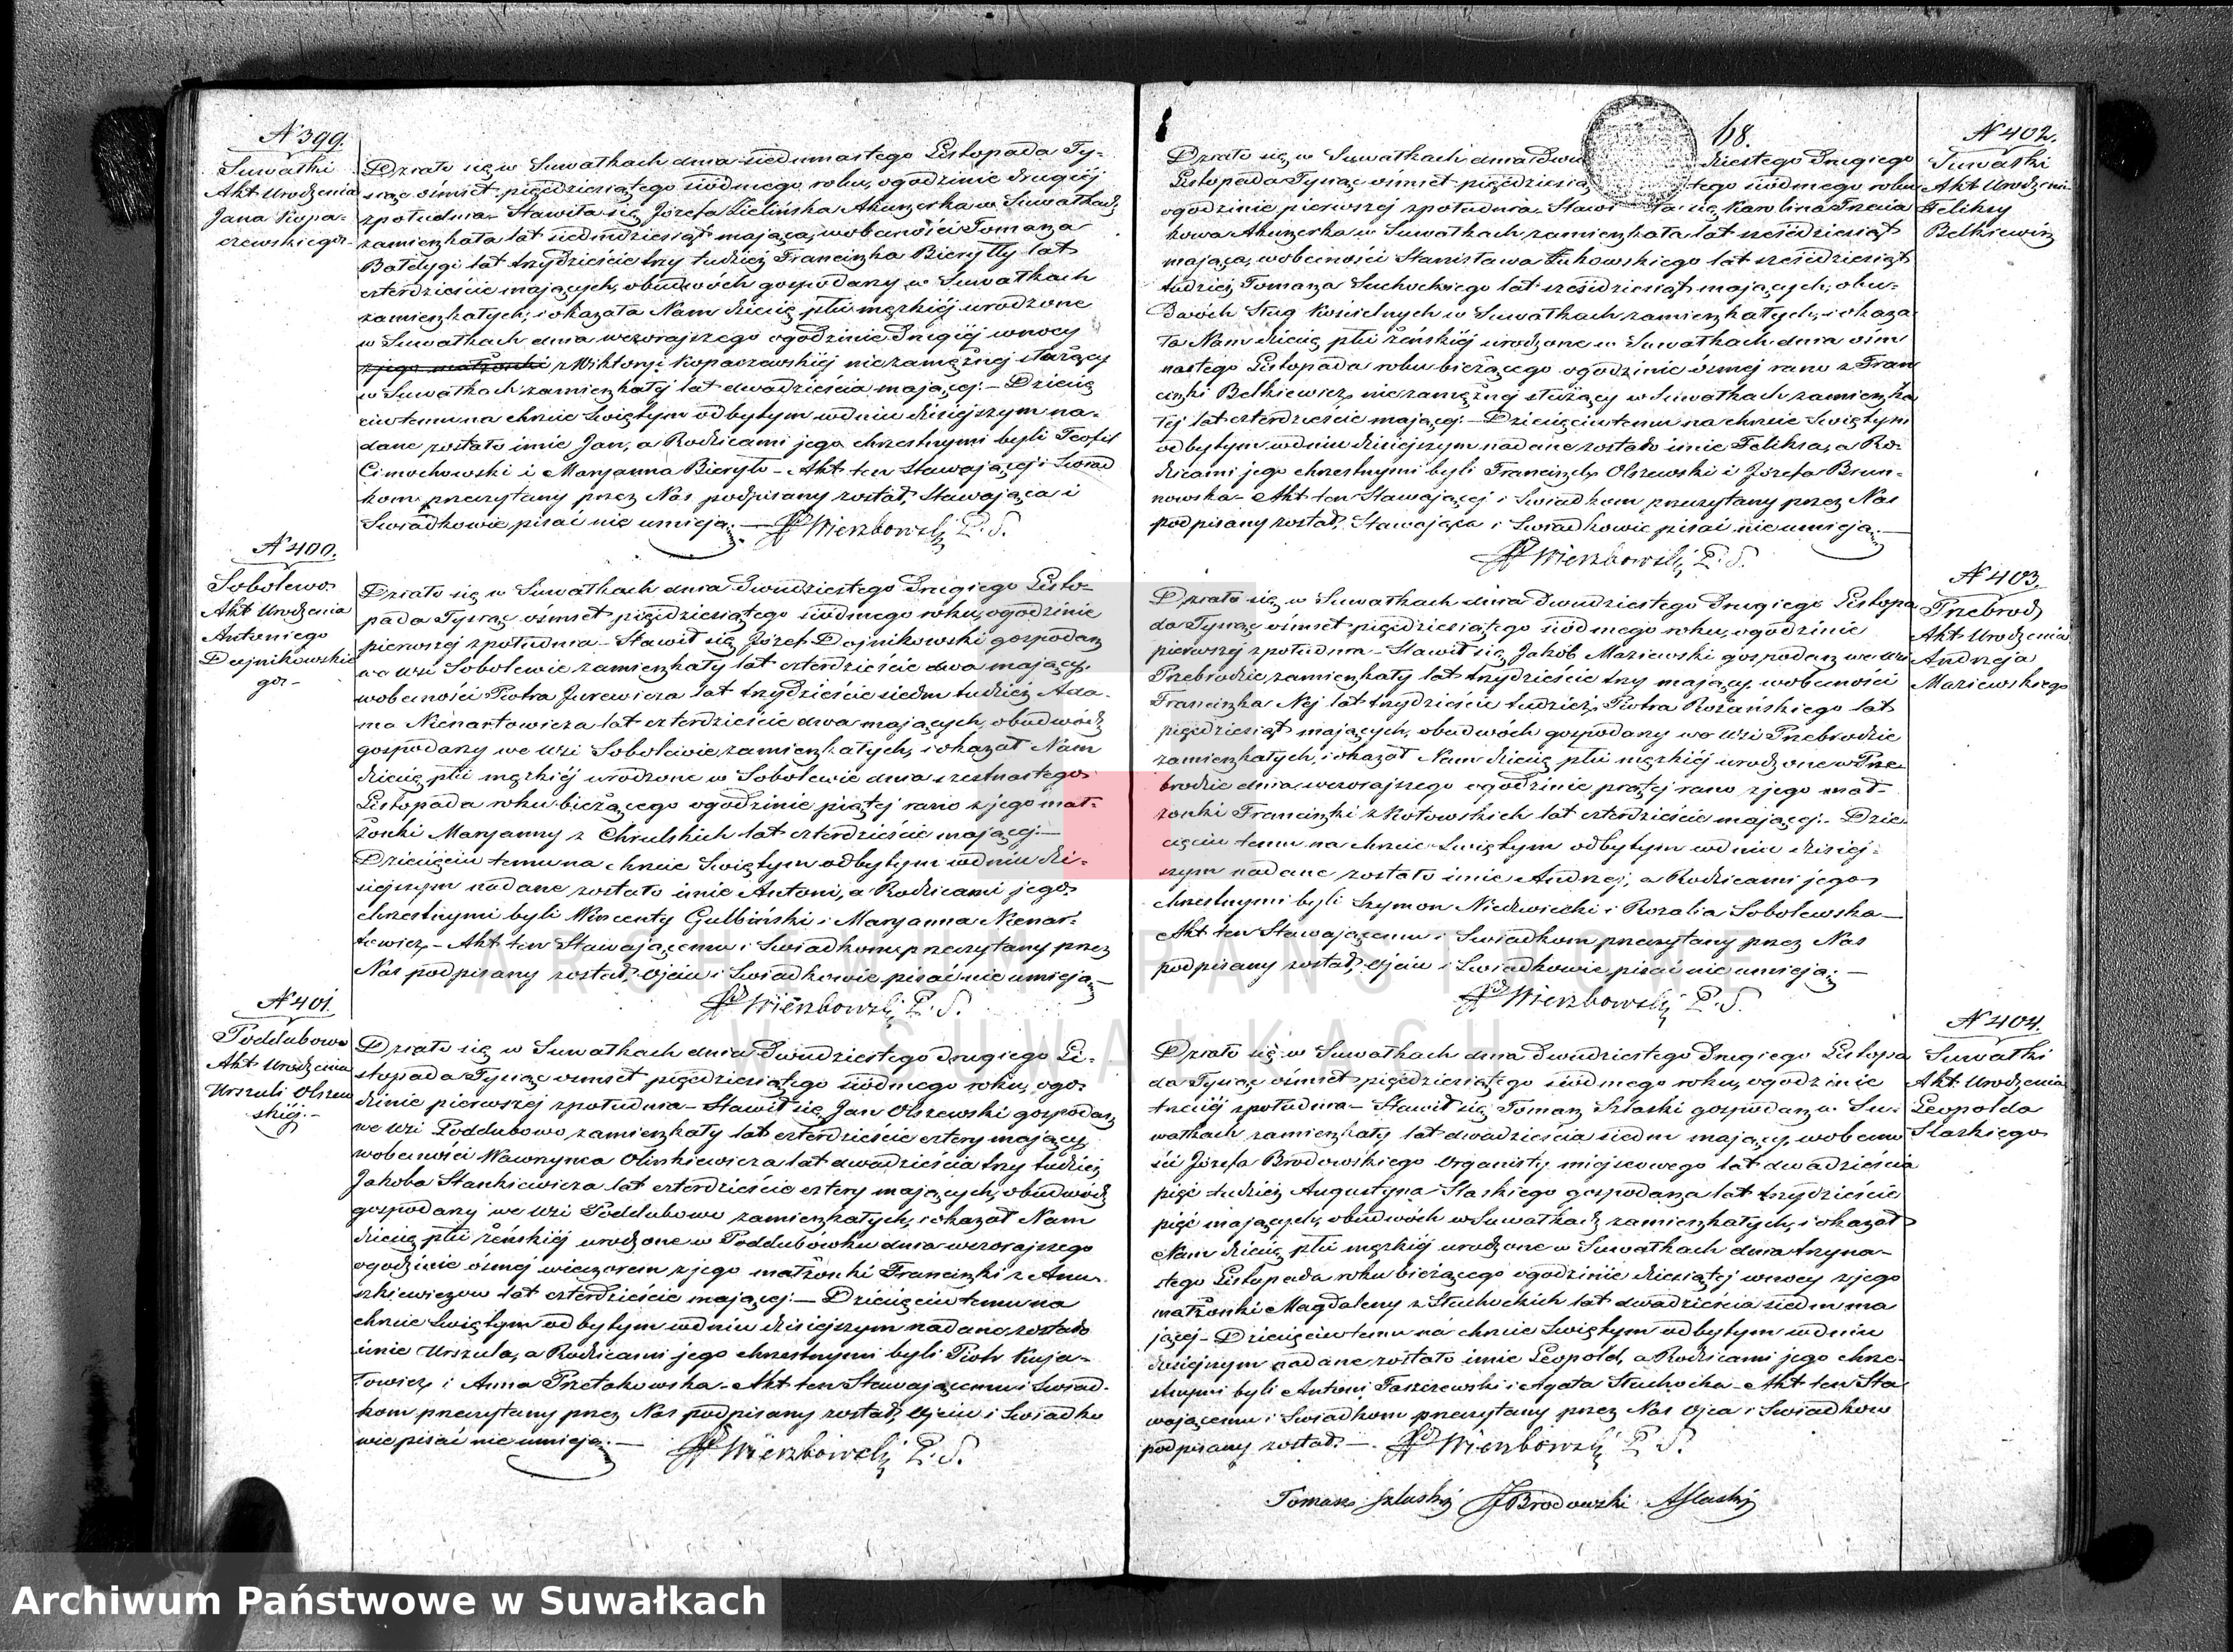 N 399.
Suwałki
Akt Urodzenia
Jana Kopa-
czewskiego.-
Działo się w Suwałkach dnia siedmnastego Listopada Ty-
siąc ośmset pięćdziesiątego siódmego roku, o godzinie drugiéj
z południa - Stawiła się Józefa Zielińska Akuszerka w Suwałkach
zamieszkała lat siedmdziesiąt mająca, w obecności Tomasza
Bałdygi lat trzydzieście trzy tudzież Franciszka Bieryłły lat
czterdzieście mających, obudwóch gospodarzy w Suwałkach
zamieszkałych, i okazała Nam dziecię płci męzkiéj urodzone
w Suwałkach dnia wczorajszego o godzinie drugiéj w nocy
z jego małżonki z Wiktoryi Kopaczewskiéj niezamężnej służącej
w Suwałkach zamieszkałej lat dwadzieścia mającej. - Dziecię
ciu temu na chrzcie Świętym odbytym w dniu dzisiejszym na-
dane zostało imie Jan, a Rodzicami jego chrzestnymi byli Teofil
Cimochowski i Maryanna Bieryło - Akt ten stawającéj i Świad
kom przeczytany przez Nas podpisany został, Stawająca i
Świadkowie pisać nie umieją. - X Wierzbowski P. S.
N 400.
Sobolewo
Akt Urodzenia
Antoniego
Dojnikowskie
go -
Działo się w Suwałkach dnia Dwudziestego Drugiego Listo-
pada Tysiąc ośmset pięćdziesiątego siódmego roku, o godzinie
pierwszej z południa - Stawił się Józef Dojnikowski gospodarz
we wsi Sobolewie zamieszkały lat czterdzieście dwa mający,
w obecności Piotra Jurewicza lat trzydzieście siedm tudzież Ada-
ma Nienartowicza lat czterdzieście dwa mających, obudwóch
gospodarzy we wsi Sobolewie zamieszkałych, i okazał Nam
dziecię płci męzkiéj urodzone w Sobolewie dnia szesnastego
Listopada roku bieżącego o godzinie piątej rano z jego mał-
żonki Maryanny z Chrulskich lat czterdzieście mającej. -
Dziecięciu temu na chrzcie Świętym odbytym w dniu dzi-
siejszym nadane zostało imie Antoni, a Rodzicami jego
chrzestnymi byli Wincenty Gulbiński i Maryanna Nienar-
towicz, - Akt ten Stawającemu i Świadkom przeczytany przez
Nas podpisany został, Ojciec i Świadkowie pisać nie umieją -
X Wierzbowski P. S.
N 401.
Poddubowo
Akt Urodzenia
Urszuli Olszew
skiéj. -
Działo się w Suwałkach dnia Dwudziestego drugiego Li-
stopada Tysiąc ośmset pięćdziesiątego siódmego roku, o go-
dzinie pierwszej z południa - Stawił się Jan Olszewski gospodarz
we wsi Poddubowo zamieszkały lat czterdzieście cztery mający,
w obecności Wawrzynca Olinkiewicza lat dwadzieścia trzy tudzież
Jakoba Stankiewicza lat czterdzieście cztery mających, obudwóch
gospodarzy we wsi Poddubowo zamieszkałych, i okazał Nam
dziecię płci żeńskiéj urodzone w Poddubówku dnia wczorajszego
o godzinie ósmej wieczorem z jego małżonki Franciszki z Anu-
szkiewiczow lat czterdzieście mającej. - Dziecięciu temu na
chrzcie Świętym odbytym w dniu dzisiejszym nadane zostało
imie Urszula, a Rodzicami jego chrzestnymi byli Piotr Kuja-
łowicz i Anna Przełakowska - Akt ten Stawającemu i Świad-
kom przeczytany przez Nas podpisany został, Ojciec i Świadko
wie pisać nie umieją. - X Wierzbowski P. S.
68.
N 402.
Suwałki
Akt Urodzenia
Feliksy
Belkiewicz
Działo się w Suwałkach dnia Dwu dziestego Drugiego
Listopada Tysiąc ośmset pięćdziesią tego siódmego roku
o godzinie pierwszej z południa - Stawi ła się Karolina Trzcia
kowa Akuszerka w Suwałkach zamieszkała lat sześćdziesiąt
mająca, w obecności Stanisława Żukowskiego lat sześćdziesiąt
tudzież Tomasza Suchockiego lat sześćdziesiąt mających, obu-
dwóch Sług Kościelnych w Suwałkach zamieszkałych, i okaza
ła Nam dziecię płci żeńskiéj urodzone w Suwałkach dnia ośm
nastego Listopada roku bieżącego o godzinie ósmej rano z Fran
ciszki Belkiewicz niezamężnej służącej w Suwałkach zamieszka
łej lat czterdzieście mającej. - Dziecięciu temu na chrzcie Świętym
odbytym w dniu dzisiejszym nadane zostało imie Feliksa, a Ro-
dzicami jego chrzestnymi byli Franciszek Olszewski i Józefa Brun-
nowska - Akt ten Stawającej i Świadkom przeczytany przez Nas
podpisany został, Stawająca i Świadkowie pisać nie umieją. -
X Wierzbowski P. S.
N 403.
Przebrod
Akt Urodzenia
Andrzeja
Maziewskiego
Działo się w Suwałkach dnia Dwudziestego Drugiego Listopa
da Tysiąc ośmset pięćdziesiątego siódmego roku, o godzinie
pierwszej z południa - Stawił się Jakób Maziewski gospodarz we wsi
Przebrodzie zamieszkały lat trzydzieście trzy mający w obecności
Franciszka Nej lat trzydzieście tudzież Piotra Rożańskiego lat
pięćdziesiąt mających, obudwóch gospodarzy we wsi Przebrodzie
zamieszkałych, i okazał Nam dziecię płci męzkiéj urodzone w Prze-
brodzie dnia wczorajszego o godzinie piątej rano z jego mał-
żonki Franciszki z Kotowskich lat czterdzieście mającej. - Dzie
cięciu temu na chrzcie Świętym odbytym w dniu dzisiej-
szym nadane zostało imie Andrzej, a Rodzicami jego
chrzestnymi byli Szymon Niedzwiecki i Rozalia Sobolewska -
Akt ten Stawającemu i Świadkom przeczytany przez Nas
podpisany został, Ojciec i Świadkowie pisać nie umieją. -
X Wierzbowski P. S.
N 404.
Suwałki
Akt Urodzenia
Leopolda
Slaskiego
Działo się w Suwałkach dnia Dwudziestego Drugiego Listopa
da Tysiąc ośmset pięćdziesiątego siódmego roku, o godzinie
trzeciéj z południa - Stawił się Tomasz Szlaski gospodarz w Su-
wałkach zamieszkały lat dwadzieścia siedm mający w obecno
ści Józefa Brodowskiego Organisty miejscowego lat dwadzieścia
pięć tudzież Augustyna Slaskiego gospodarza lat trzydzieście
pięć mających, obudwóch w Suwałkach zamieszkałych, i okazał
Nam dziecię płci męzkiéj urodzone w Suwałkach dnia trzyna-
stego Listopada roku bieżącego o godzinie dziesiątej w nocy z jego
małżonki Magdaleny z Stuchockich lat dwadzieścia siedm ma
jącej - Dziecięciu temu na chrzcie Świętym odbytym w dniu
dzisiejszym nadane zostało imie Leopold, a Rodzicami jego chrze-
stnymi byli Antoni Faszczewski i Agata Stuchocka - Akt ten Sta
wającemu i Świadkom przeczytany przez Nas Ojca i Świadkow
podpisany został. - X Wierzbowski P. S.
Tomasz Szlaski J Brodowski A Slaski
ARCHIWUM PAŃSTWOWE
W SUWAŁKACH
Archiwum Państwowe w Suwałkach